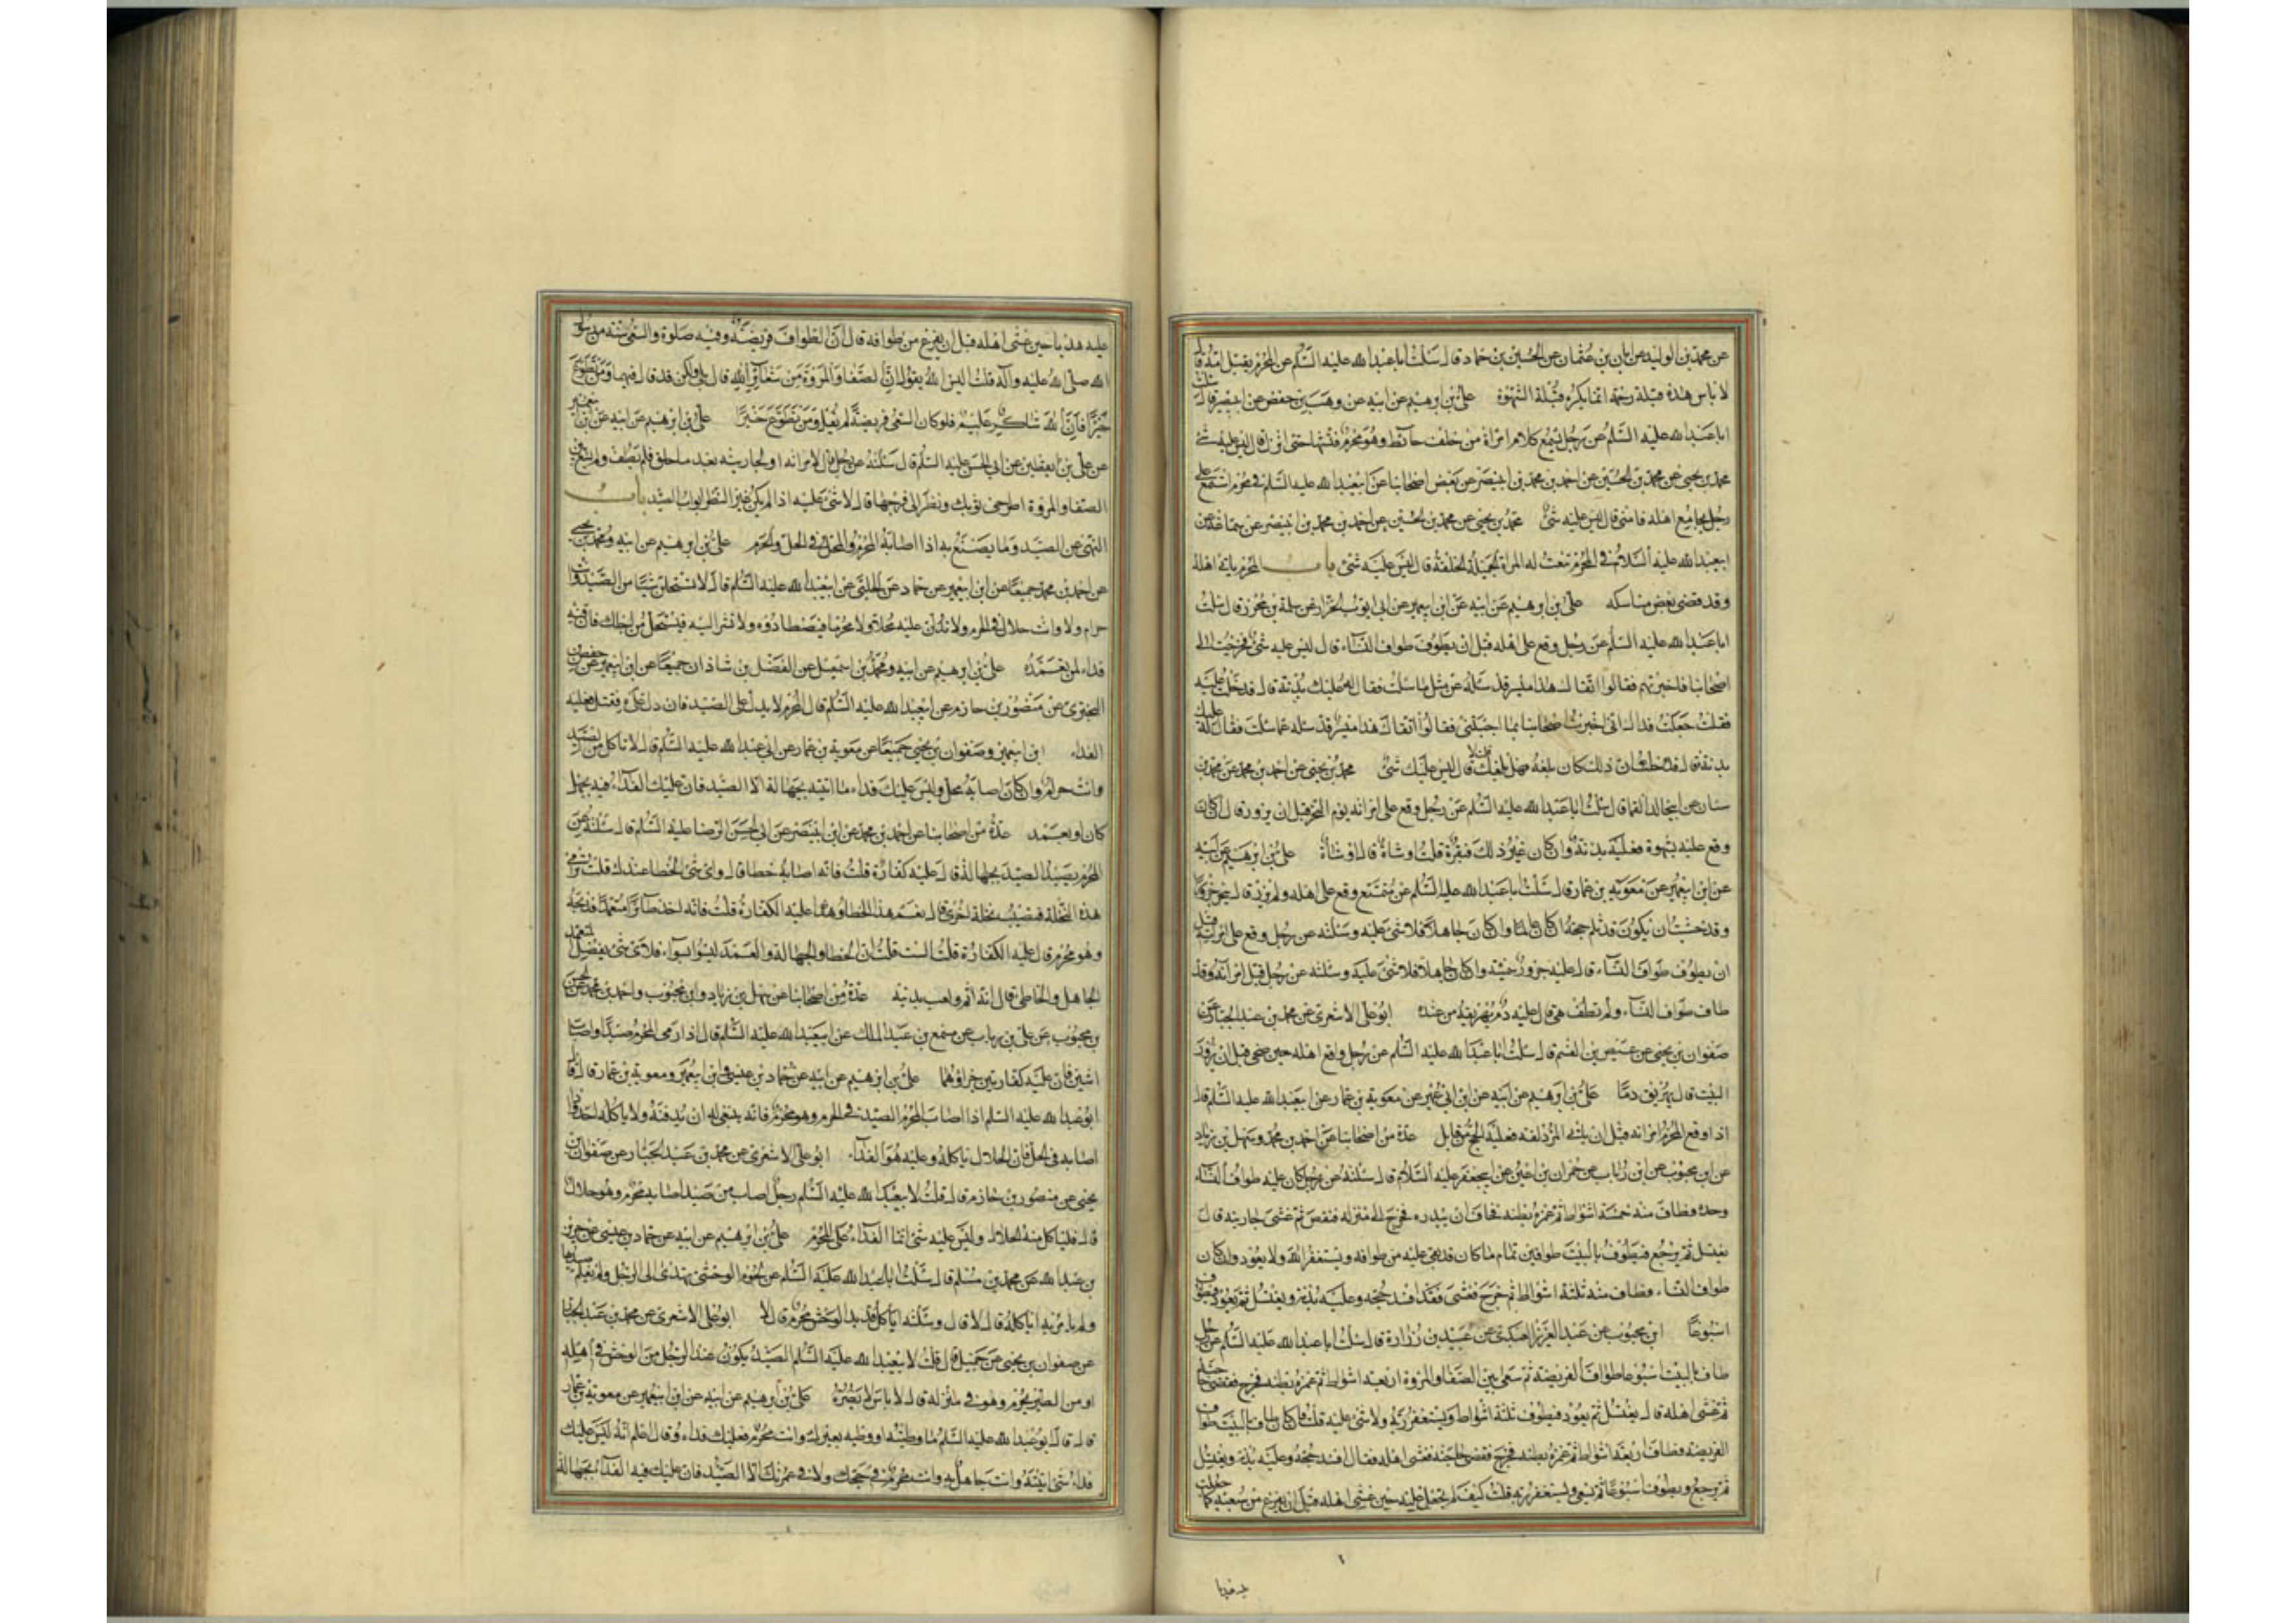 عن محمد بن الوليد عن ابان بن عثمان عن الحسين بن حماد قال سئلت اباعبدالله عليه السلم عن المحرم يقبل امه قال
لا باس هذه قبلة رحمة انما يكره قبلة الشهوة علي بن ابرهيم عن ابيه عن وهيب بن حفص عن ابيبصير قال سئلت
اباعبدالله عليه السلم عن رجل يسمع كلام امراة من خلف حائط وهو محرم فتشهاها حتى انزل قال ليس عليه شئ
محمد بن يحيى عن محمد بن الحسين عن احمد بن محمد بن ابينصر عن بعض اصحابنا عن ابيعبدالله عليه السلم في محرم استمع على
رجل يجامع اهله فامنى قال ليس عليه شئ محمد بن يحيى عن محمد بن الحسين عن احمد بن محمد بن ابينصر عن سماعة عن
ابيعبدالله عليه السلام في المحرم تنعت له المراة الجميلة الخلقة قال ليس عليه شئ باب المحرم ياتي اهله
وقد قضى بعض مناسكه علي بن ابرهيم عن ابيه عن ابن ابيعمير عن ابي ايوب الخزاز عن سلمة بن محرز قال سئلت
اباعبدالله عليه السلم عن رجل وقع على اهله قبل ان يطوف طواف النساء قال ليس عليه شئ فخرجت الى
اصحابنا فاخبرتهم فقالوا اتقاك هذا ميسر قد سئله عن مثل ما سئلت فقال له عليك بدنة قال فدخلت عليه
فقلت جعلت فداك اني اخبرت اصحابنا بما اجبتني فقالوا اتقاك هذا ميسر قد سئله عما سئلت فقال له عليك
بدنة قال ان ذلك كان بلغه فهل بلغك قلت لا قال ليس عليك شئ محمد بن يحيى عن احمد بن محمد عن محمد بن
سنان عن ابيخالد القماط قال سئلت اباعبدالله عليه السلم عن رجل وقع على امراته يوم النحر قبل ان يزور قال ان كان
وقع عليها بشهوة فعليه بدنة وان كان غير ذلك فبقرة قلت اوشاة قال اوشاة علي بن ابرهيم عن ابيه
عن ابن ابيعمير عن معوية بن عمار قال سئلت اباعبدالله عليه السلم عن متمتع وقع على اهله ولم يزر قال ينحر جزورا
وقد خشيت ان يكون قد ثلم حجه ان كان عالما وان كان جاهلا فلا شئ عليه وسئلته عن رجل وقع على امراته قبل
ان يطوف طواف النساء قال عليه جزور سمينة وان كان جاهلا فلا شئ عليه وسئلته عن رجل قبل امراته وقد
طاف طواف النساء ولم تطف هي قال عليه دم يهريقه من عنده ابوعلي الاشعري عن محمد بن عبد الجبار عن
صفوان بن يحيى عن عيص بن القسم قال سئلت اباعبدالله عليه السلم عن رجل واقع اهله حين ضحى قبل ان يزور
البيت قال يهريق دما علي بن ابرهيم عن ابيه عن ابن ابي عمير عن معوية بن عمار عن ابيعبدالله عليه السلم قال
اذا وقع المحرم امراته قبل ان ياتي المزدلفة فعليه الحج من قابل عدة من اصحابنا عن احمد بن محمد وسهل بن زياد
عن ابن محبوب عن ابن رئاب عن حمران بن اعين عن ابيجعفر عليه السلام قال سئلته عن رجل كان عليه طواف النساء
وحده فطاف منه خمسة اشواط ثم غمزه بطنه فخاف ان يبدره فخرج الى منزله فنقص ثم غشى جاريته قال
يغتسل ثم يرجع فيطوف بالبيت طوافين تمام ما كان قد بقي عليه من طوافه ويستغفر الله ولا يعود وان كان
طواف النساء فطاف منه ثلثة اشواط ثم خرج فغشى فقد افسد حجه وعليه بدنة ويغتسل ثم يعود فيطوف
اسبوعا ابن محبوب عن عبد العزيز العبدي عن عبيد بن زرارة قال سئلت اباعبدالله عليه السلم عن رجل
طاف بالبيت اسبوعا طواف الفريضة ثم سعى بين الصفا والمروة اربعة اشواط ثم غمزه بطنه فخرج فقضى حاجته
ثم غشى اهله قال يغتسل ثم يعود فيطوف ثلثة اشواط ويستغفر ربه ولا شئ عليه قلت فان كان طاف بالبيت طواف
الفريضة فطاف اربعة اشواط ثم غمزه بطنه فخرج فقضى حاجته فغشى اهله فقال افسد حجه وعليه بدنة ويغتسل
ثم يرجع ويطوف اسبوعا ثم يسعى ويستغفر ربه قلت كيف لم تجعل عليه حين غشى اهله قبل ان يفرغ من سعيه كما جعلت
عليه هديا حين غشى اهله قبل ان يفرغ من طوافه قال ان الطواف فريضة وفيه صلوة والسعي سنة من رسول
الله صلى الله عليه وآله قلت اليس الله يقول ان الصفا والمروة من شعائر الله قال بلى ولكن قد قال فيهما ومن تطوع
خيرا فان الله شاكر عليم فلو كان السعي فريضة لم يقل ومن تطوع خيرا علي بن ابرهيم عن ابيه عن ابن ابيعمير
عن علي بن يقطين عن ابي الحسن عليه السلم قال سئلته عن رجل قال لامراته او لجاريته بعد ما حلق فلم يطف ولم يسع بين
الصفا والمروة اطرحي ثوبك ونظر الى فرجها قال لا شئ عليه اذا لم يكن غير النظر ابواب الصيد باب
النهي عن الصيد وما يصنع به اذا اصابه المحرم والمحل في الحل والحرم علي بن ابرهيم عن ابيه ومحمد بن يحيى
عن احمد بن محمد جميعا عن ابن ابيعمير عن حماد عن الحلبي عن ابيعبدالله عليه السلم قال لا تستحلن شيئا من الصيد وانت
حرام ولا وانت حلال في الحرم ولا تدلن عليه محلا ولا محرما فيصطادوه ولا تشر اليه فيستحل من اجلك فان فيه
فداء لمن تعمده علي بن ابرهيم عن ابيه ومحمد بن اسمعيل عن الفضل بن شاذان جميعا عن ابن ابيعمير عن حفص بن
البختري عن منصور بن حازم عن ابيعبدالله عليه السلم قال المحرم لا يدل على الصيد فان دل عليه فقتل فعليه
الفداء ابن ابيعمير وصفوان بن يحيى جميعا عن معوية بن عمار عن ابي عبدالله عليه السلم قال لا تاكل من الصيد
وانت حرام وان كان اصابه محل وليس عليك فداء ما اتيته بجهالة الا الصيد فان عليك الفداء فيه بجهل
كان او بعمد عدة من اصحابنا عن احمد بن محمد عن ابن ابينصر عن ابي الحسن الرضا عليه السلم قال سئلته عن
المحرم يصيد الصيد بجهالة قال عليه كفارة قلت فانه اصابه خطا قال واي شئ الخطا عندك قلت ترمي
هذه النخلة فتصيب نخلة اخرى قال نعم هذا الخطا وعليه الكفارة قلت فانه اخذ طائرا متعمدا فذبحه
وهو محرم قال عليه الكفارة قلت الست قلت ان الخطا والجهالة والعمد ليسوا بسواء فلاي شئ يفضل المتعمد
الجاهل والخاطئ قال انه اثم ولعب بدينه عدة من اصحابنا عن سهل بن زياد وابن محبوب واحمد بن محمد عن الحسن
بن محبوب عن علي بن رئاب عن مسمع بن عبد الملك عن ابيعبدالله عليه السلم قال اذا رمى المحرم صيدا واصاب
اثنين فان عليه كفارتين جزاؤهما علي بن ابرهيم عن ابيه عن حماد بن عيسى وابن ابيعمير ومعوية بن عمار قال قال
ابوعبدالله عليه السلم اذا اصاب المحرم الصيد في الحرم وهو محرم فانه ينبغي له ان يدفنه ولا ياكله احد واذا
اصابه في الحل فان الحلال ياكله وعليه هو الفداء ابوعلي الاشعري عن محمد بن عبد الجبار عن صفوان بن
يحيى عن منصور بن حازم قال قلت لابيعبدالله عليه السلم رجل اصاب من صيد اصابه محرم وهو حلال
قال فلياكل منه الحلال وليس عليه شئ انما الفداء على المحرم علي بن ابرهيم عن ابيه عن حماد بن عيسى عن حريز
بن عبدالله عن محمد بن مسلم قال سئلت اباعبدالله عليه السلم عن لحوم الوحش تهدى الى الرجل ولم يعلم صيدها
ولم يامر به اياكله قال لا قال وسئلته اياكل قديد الوحش محرم قال لا ابوعلي الاشعري عن محمد بن عبد الجبار
عن صفوان بن يحيى عن جميل قال قلت لابيعبدالله عليه السلم الصيد يكون عند الرجل من الوحش في اهله
او من الطير يحرم وهو في منزله قال لا باس لا يضره علي بن ابرهيم عن ابيه عن ابن ابيعمير عن معوية بن عمار
قال قال ابوعبدالله عليه السلم ما وطئته او وطئه بعيرك وانت محرم فعليك فداءه وقال اعلم انه ليس عليك
فداء شئ اتيته وانت جاهل به وانت محرم في حجك ولا في عمرتك الا الصيد فان عليك فيه الفداء بجهالة